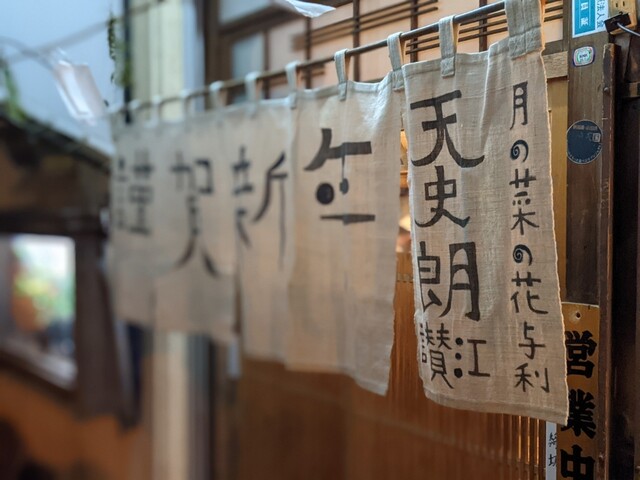 謹賀新年
月の菜の花与利
天史朗
讃江
営業中